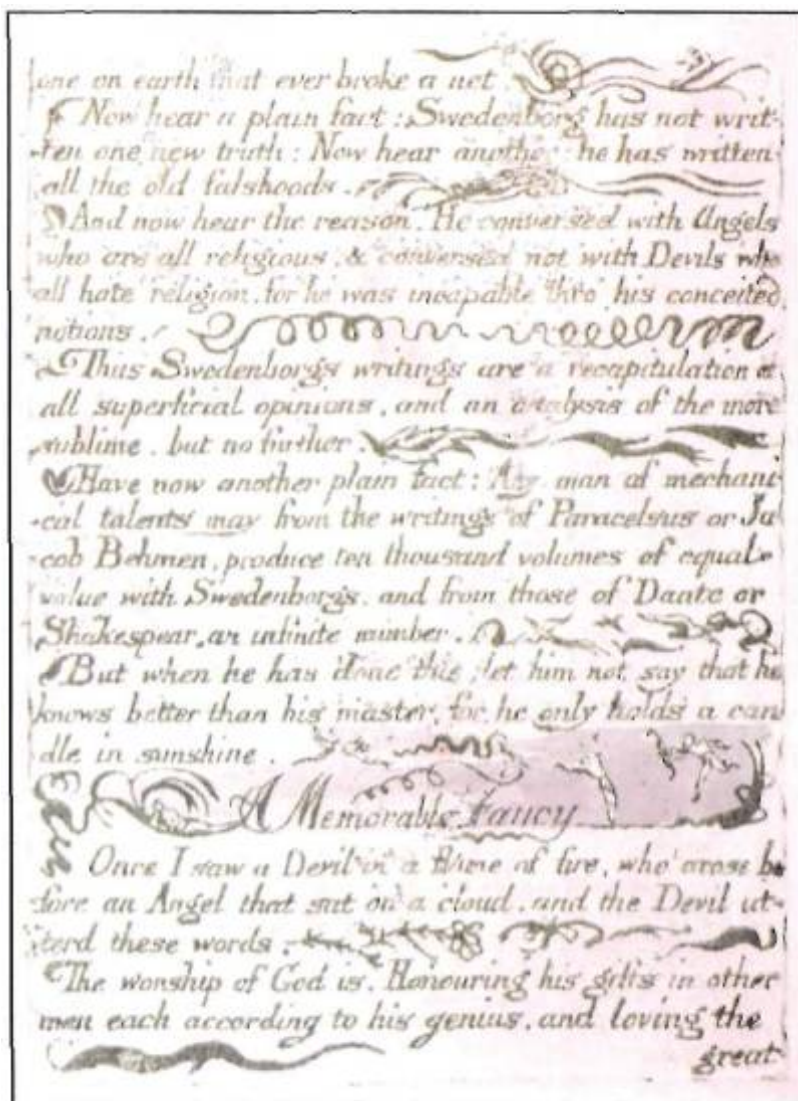 one on earth that ever broke a net.
Now hear a plain fact: Swedenborg has not writ-
-ten one new truth: Now hear another: he has written
all the old falshoods.
And now hear the reason. He conversed with Angels
who are all religious, & conversed not with Devils who
all hate religion, for he was incapable thro' his conceited
notions.
Thus Swedenborgs writings are a recapitulation of
all superficial opinions, and an analysis of the more
sublime, but no further.
Have now another plain fact: Any man of mechani-
-cal talents may from the writings of Paracelsus or Ja-
cob Behmen, produce ten thousand volumes of equal
value with Swedenborgs, and from those of Dante or
Shakespear, an infinite number.
But when he has done this, let him not say that he
knows better than his master, for he only holds a can-
dle in sunshine.
A Memorable Fancy
Once I saw a Devil in a flame of fire, who arose be-
fore an Angel that sat on a cloud, and the Devil ut-
-terd these words.
The worship of God is, Honouring his gifts in other
men each according to his genius, and loving the
great